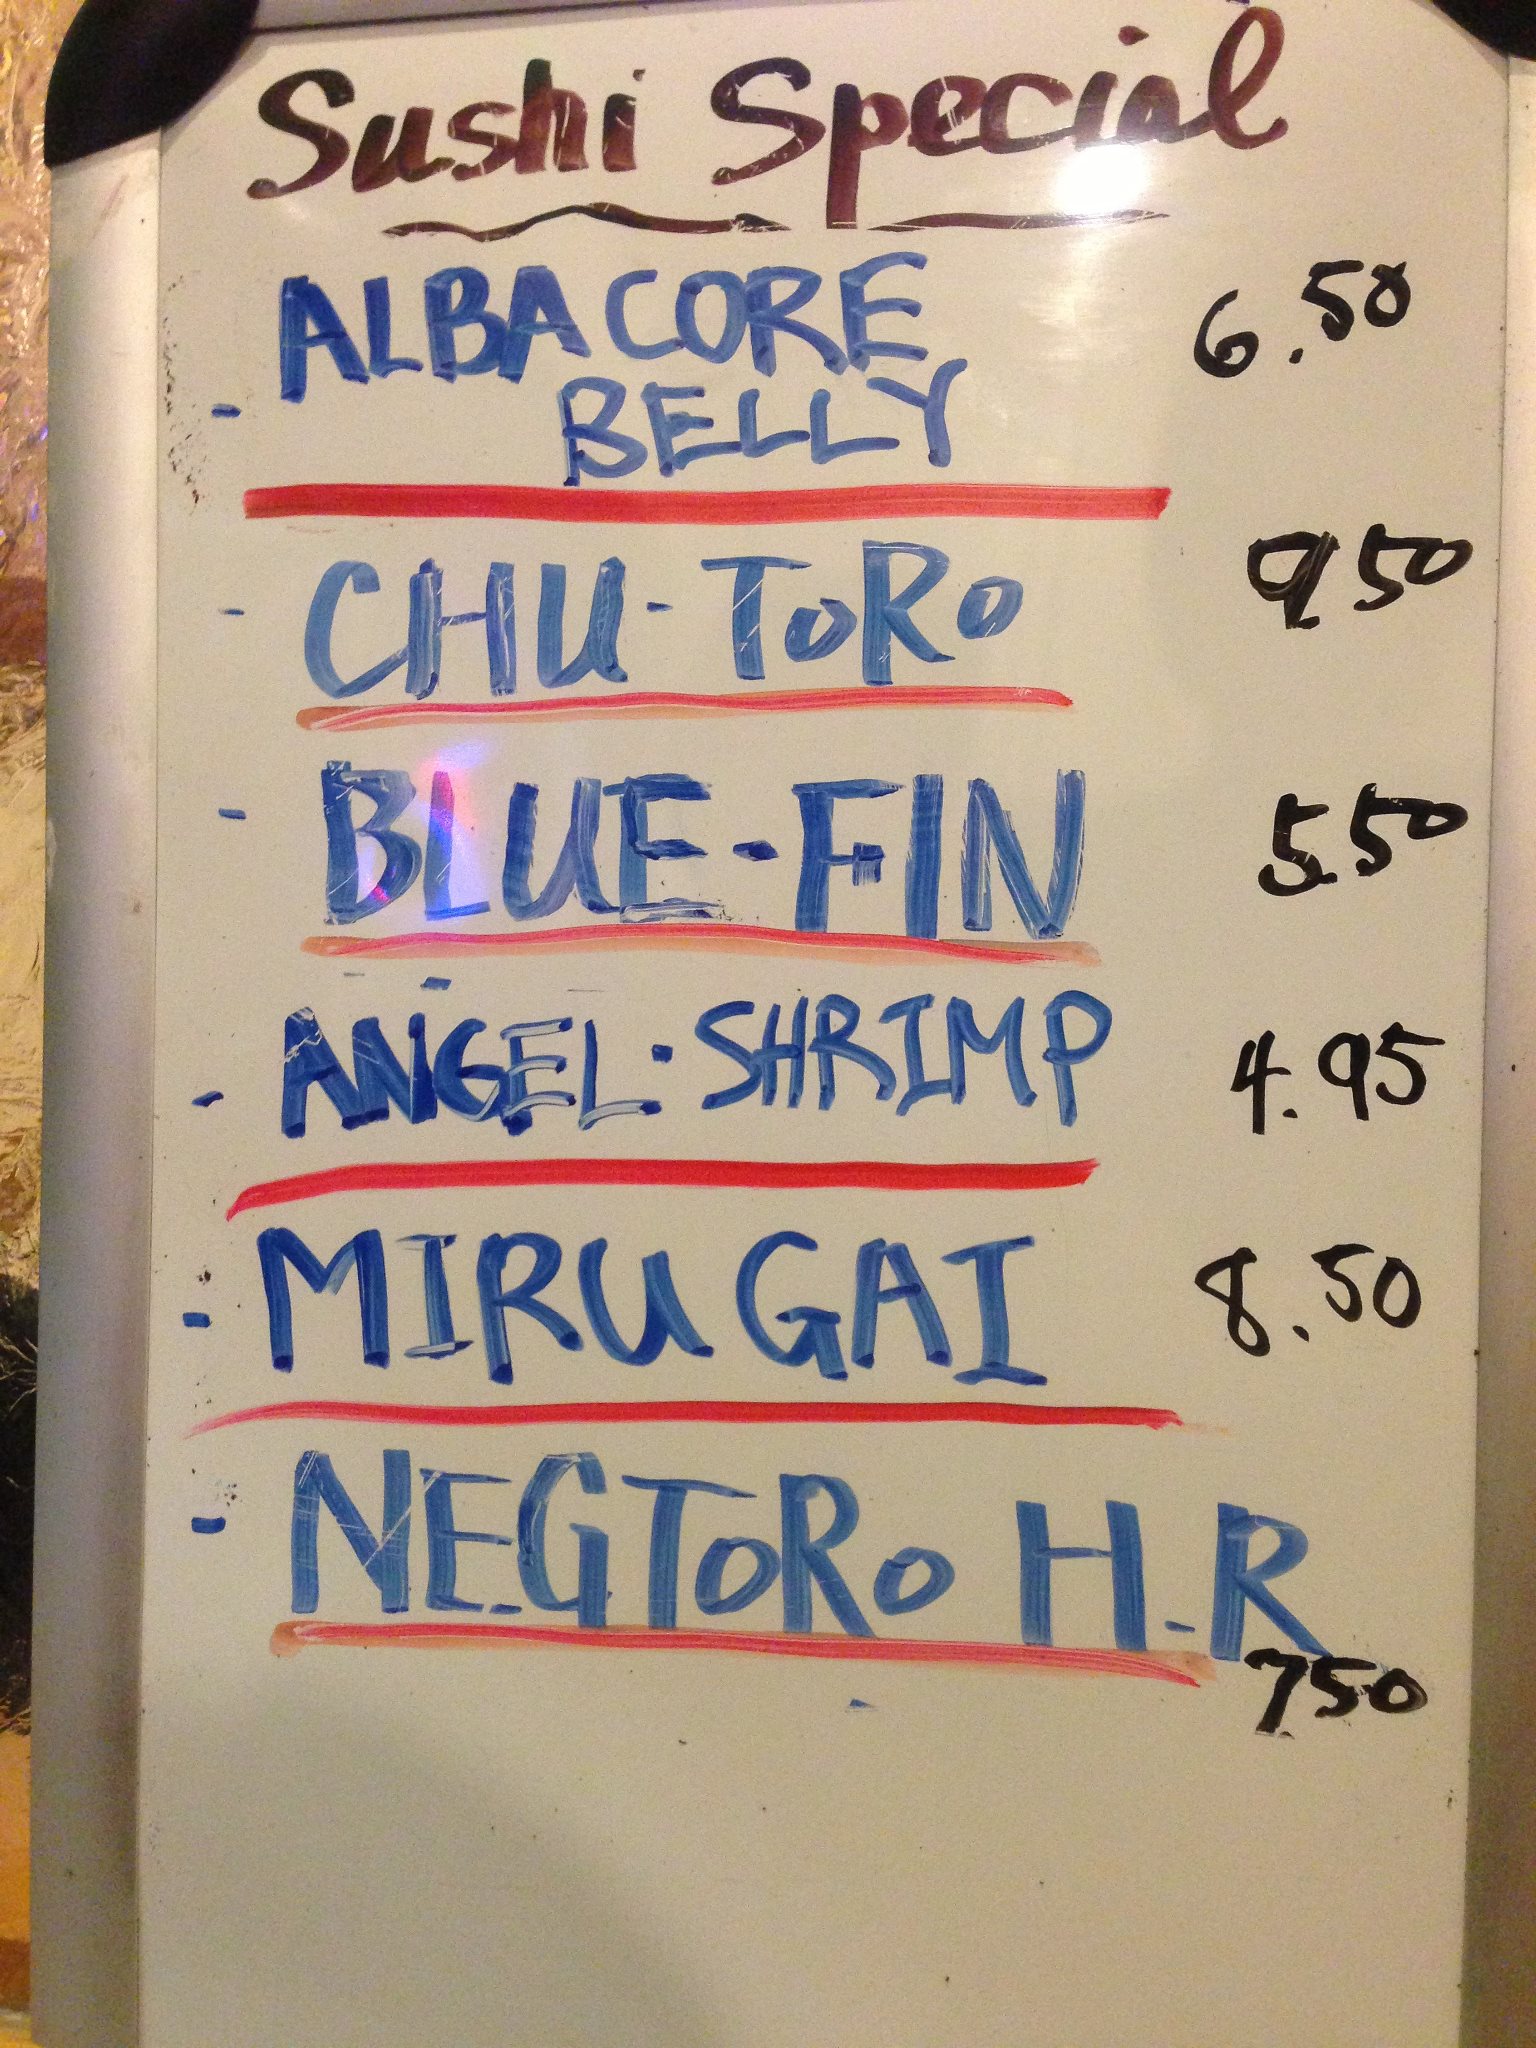 Sushi Special
- ALBACORE 6.50
BELLY
- CHU-TORO 950
- BLUE-FIN 5.50
- ANGEL-SHRIMP 4.95
- MIRUGAI 8.50
- NEGTORO H-R
7.50